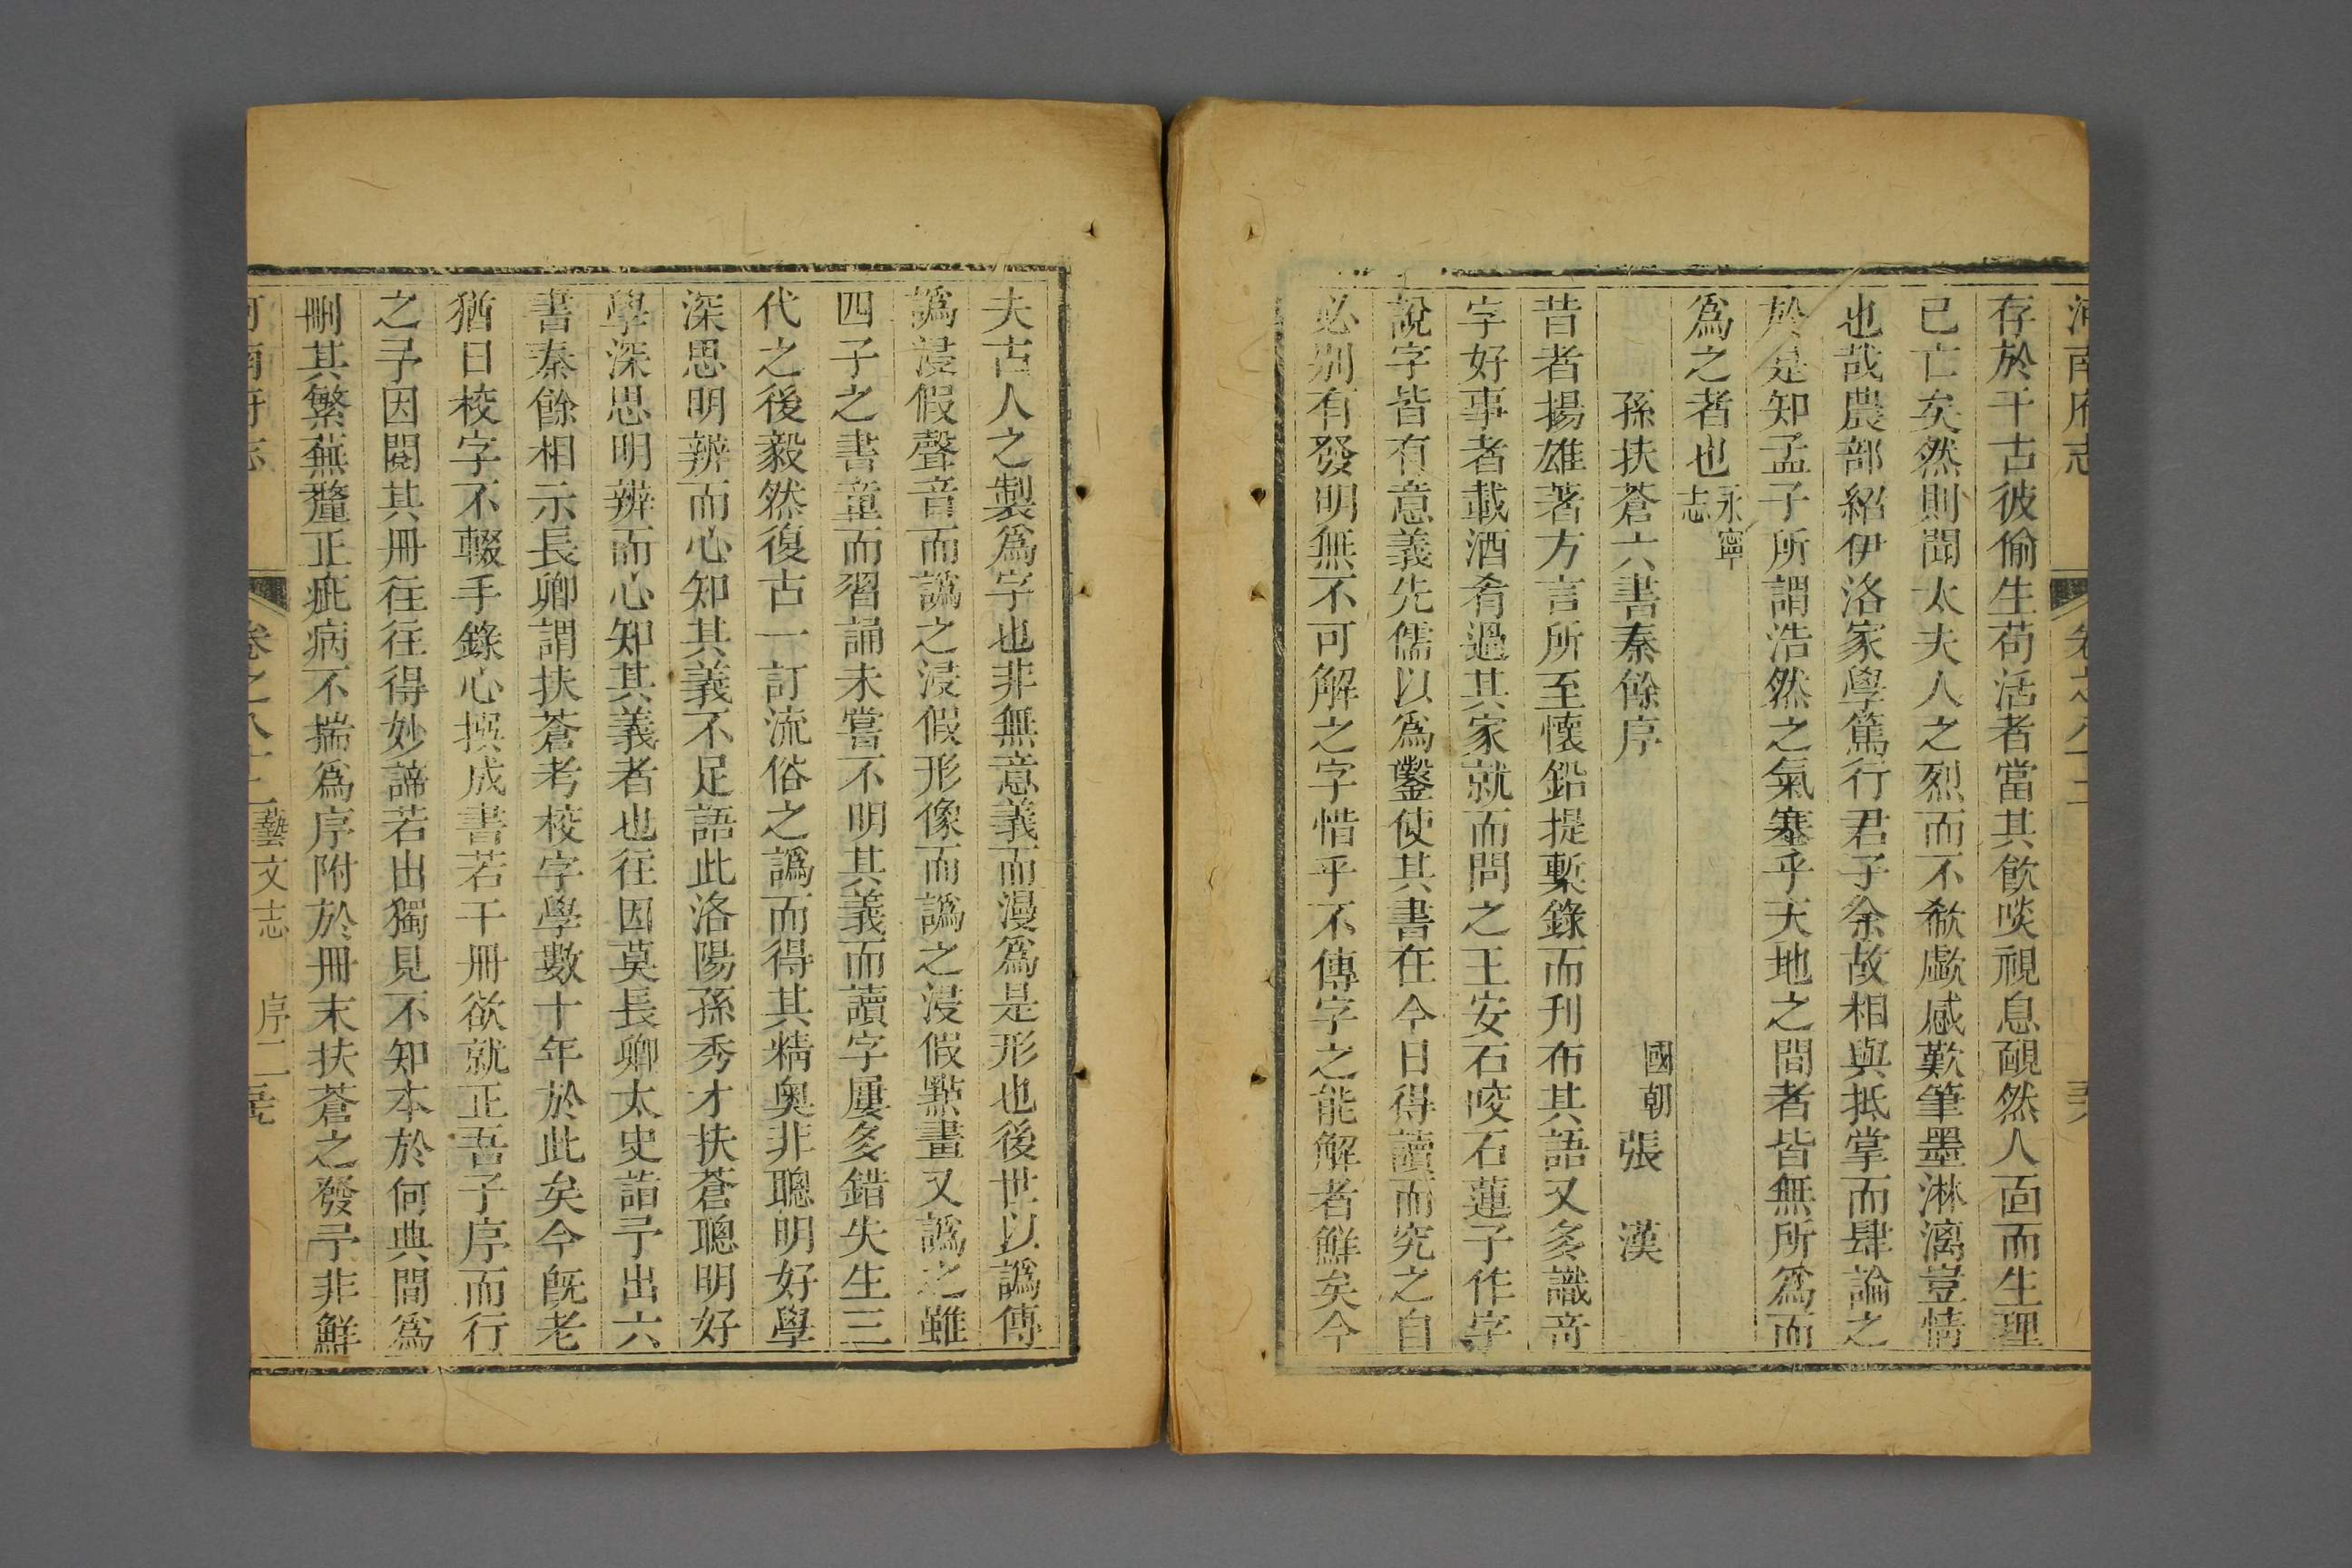 河南府志 卷之八十二
存於千古彼偷生苟活者當其飲啖視息靦然人面而生理
已亡矣然則聞太夫人之烈而不欷歔感歎筆墨淋漓豈情
也哉農部紹伊洛家學篤行君子余故相與抵掌而肆論之
於是知孟子所謂浩然之氣塞乎天地之間者皆無所爲而
爲之者也永寧志
孫扶蒼六書秦餘序
國朝張 漢
昔者揚雄著方言所至懷鉛提槧錄而刋布其語又多識竒
字好事者載酒肴過其家就而問之王安石咬石蓮子作字
說字皆有意義先儒以爲鑿使其書在今日得讀而究之自
必别有發明無不可解之字惜乎不傳字之能解者鮮矣今
夫古人之製爲字也非無意義而漫爲是形也後世以譌傳
譌浸假聲音而譌之浸假形像而譌之浸假點畫又譌之雖
四子之書童而習誦未嘗不明其義而讀字屢多錯失生三
代之後毅然復古一訂流俗之譌而得其精奥非聰明好學
深思明辨而心知其義不足語此洛陽孫秀才扶蒼聰明好
學深思明辨而心知其義者也往因莫長卿太史詣予出六
書秦餘相示長卿謂扶蒼考校字學數十年於此矣今旣老
猶日校字不輟手錄心撰成書若干冊欲就正吾子序而行
之予因閱其冊往往得妙諦若出獨見不知本於何典間爲
刪其繁蕪釐正疵病不揣爲序附於冊末扶蒼之發予非鮮
河南府志 卷之八十二 藝文志 序二